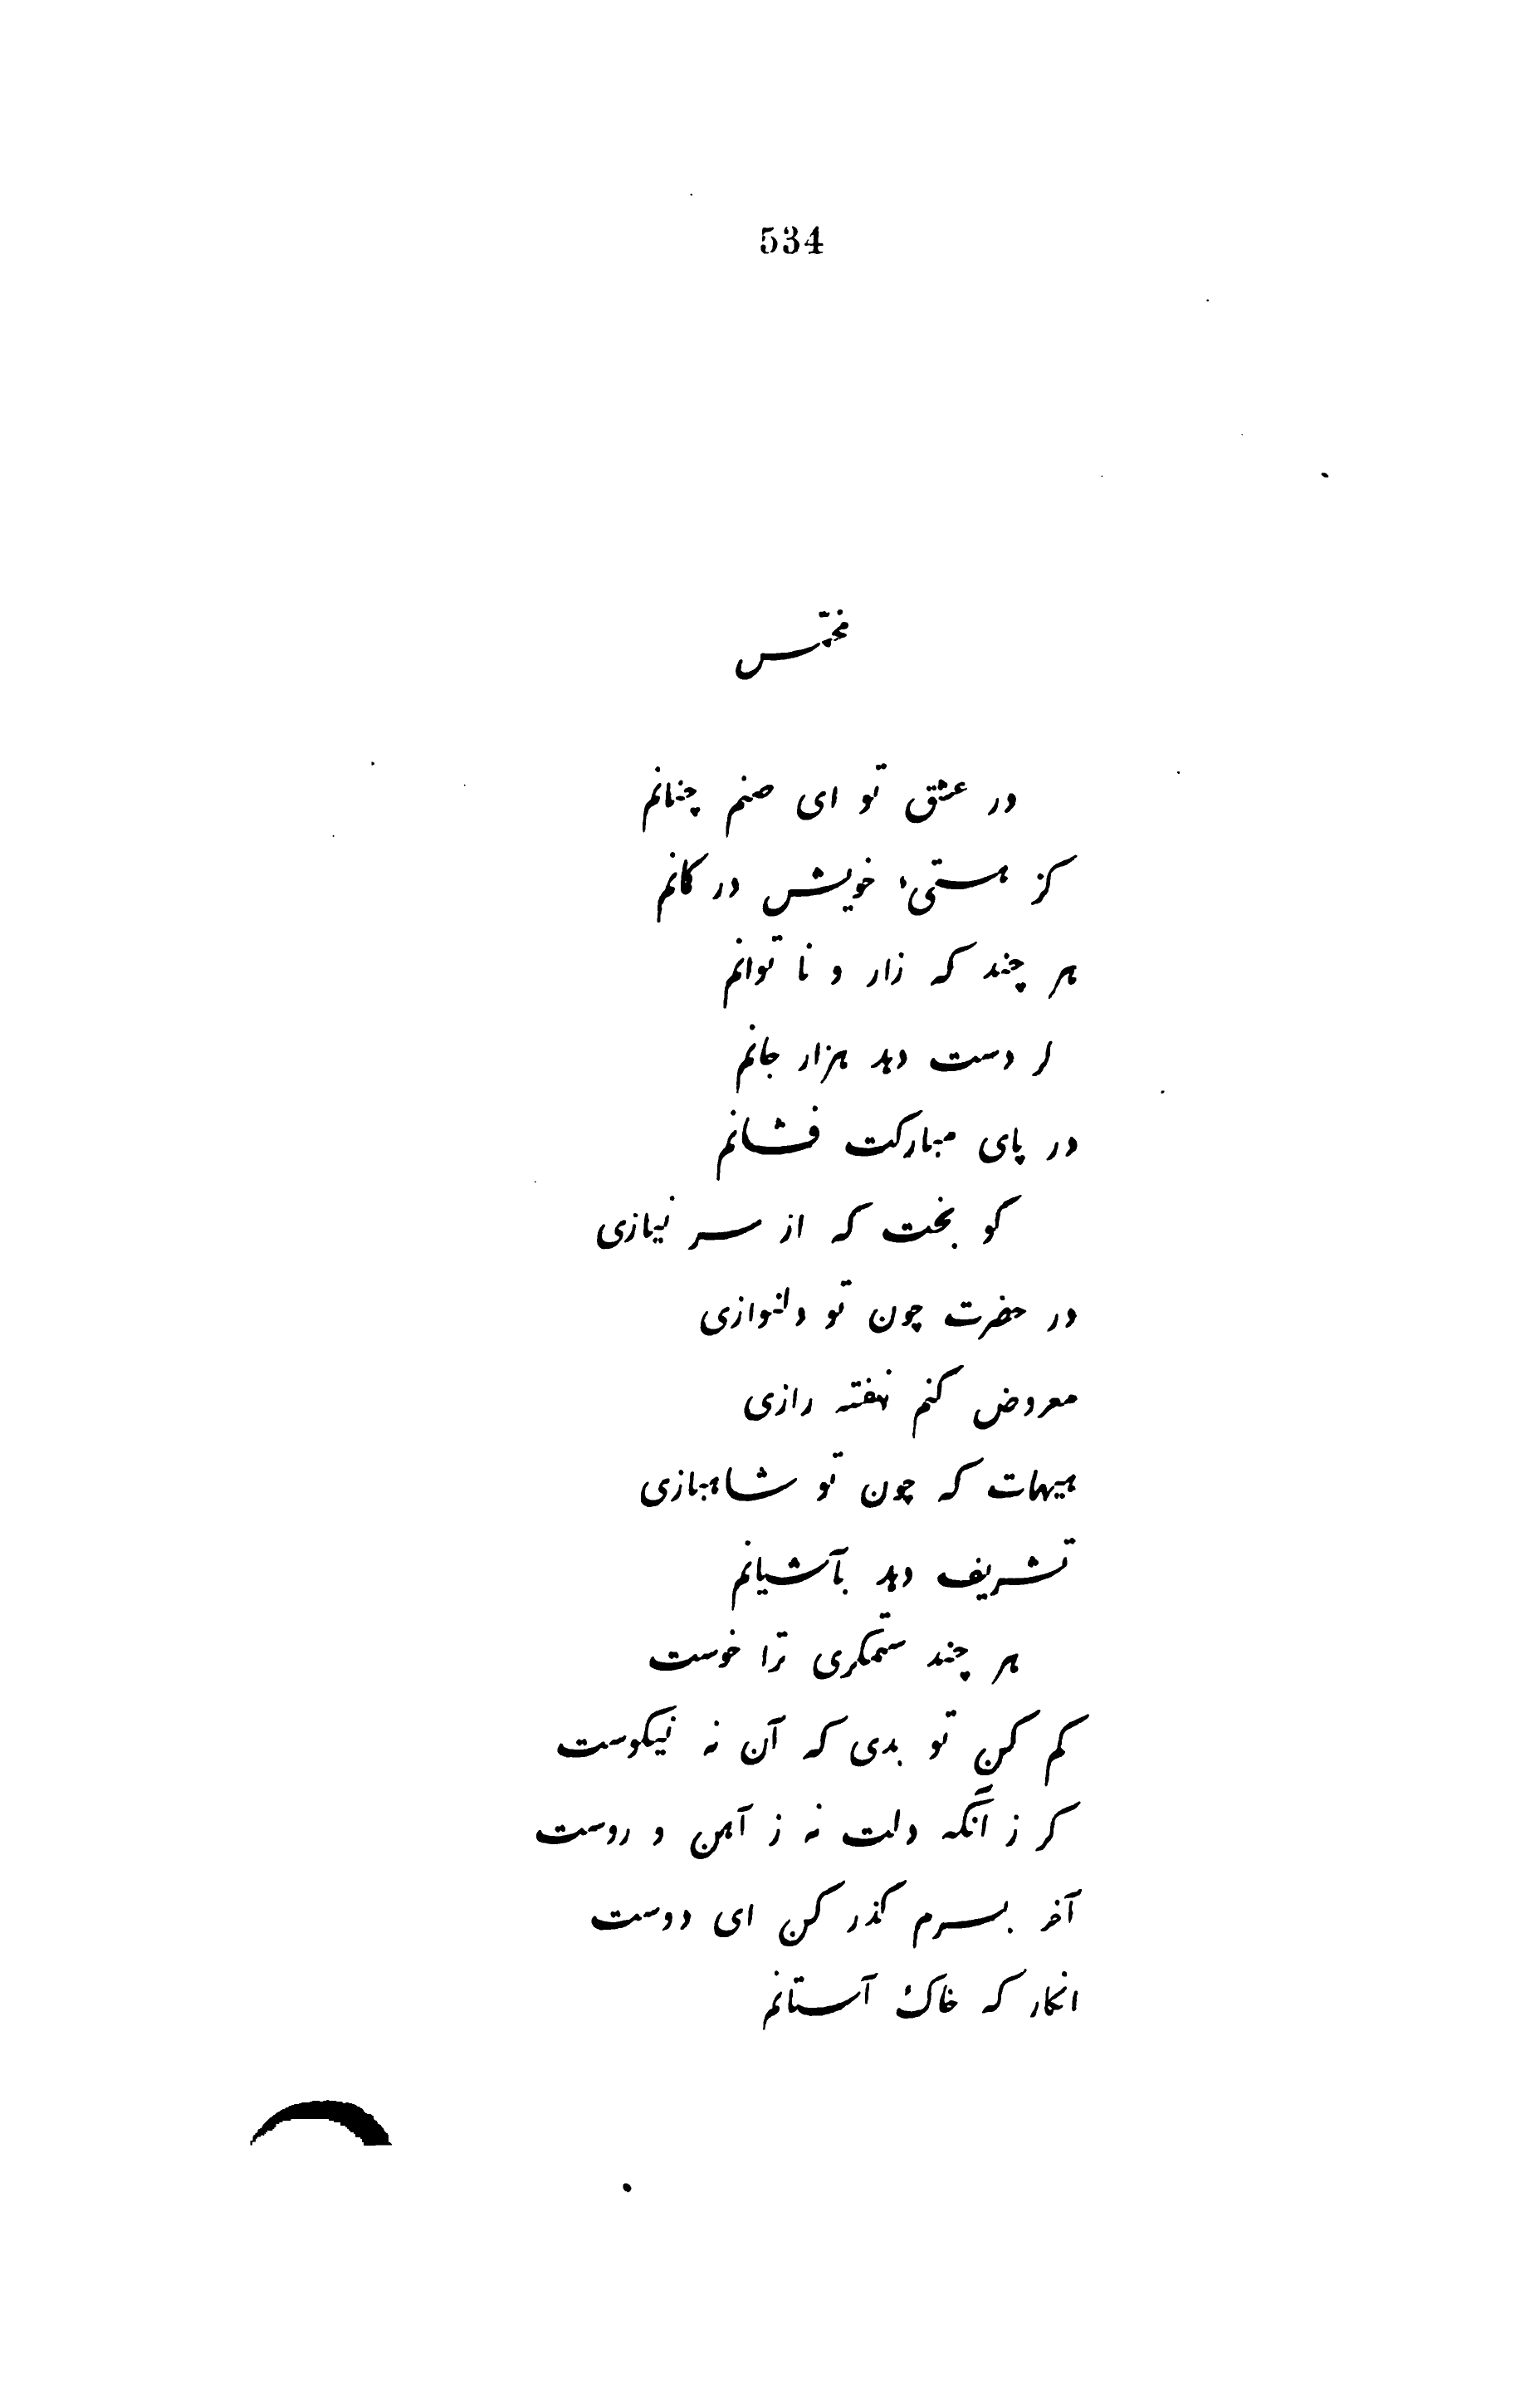 534
مخمّس
در عشق تو ای صنم چنانم
کز هستیء خویش در کمانم
هر چند که زار و نا توانم
ار دست دهد هزار جانم
در پای مبارکت فشانم
کو بخت که از سر نیازی
در حضرت چون تو دلنوازی
معروض کنم نهفته رازی
هیهات که چون تو شاهبازی
تشریف دهد بآشیانم
هر چند ستمکری ترا خوست
کم کن تو بدی که آن نه نیکوست
کر ز آنکه دلت نه ز آهن و روست
آخر بسرم کذر کن ای دوست
انکار که خاک آستانم